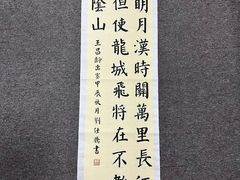 明月漢時關萬里長征
但使龍城飛將在不教
陰山
王昌齡出塞甲辰秋月劉任書